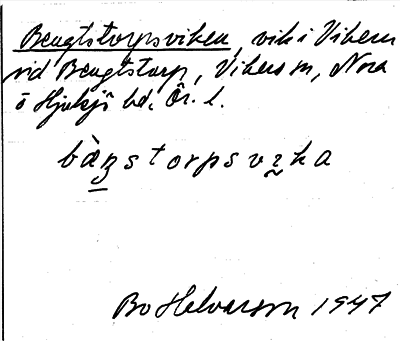 Bengtstorpsviken, vik i Vikern
vid Bengtstorp, Vikers sn, Nora
o Hjulsjö bd, Ör. l.
bàŋstorpsvika
Bo Helvarson 1947